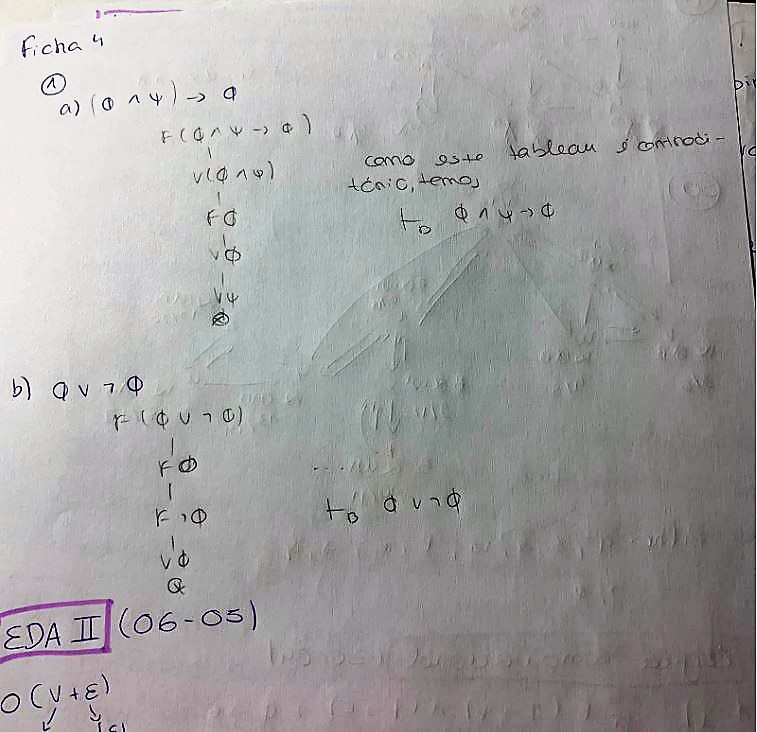 Ficha 4
①
a) (φ ∧ ψ) → φ
F(φ ∧ ψ → φ)
V(φ ∧ ψ)
Fφ
Vφ
Vψ
⊗
como este tableau é contradi-
tório, temos
⊢B φ ∧ ψ → φ
b) φ ∨ ¬φ
F(φ ∨ ¬φ)
Fφ
F¬φ
Vφ
⊗
.....
⊢B φ ∨ ¬φ
EDA II (06-05)
O(V+E)